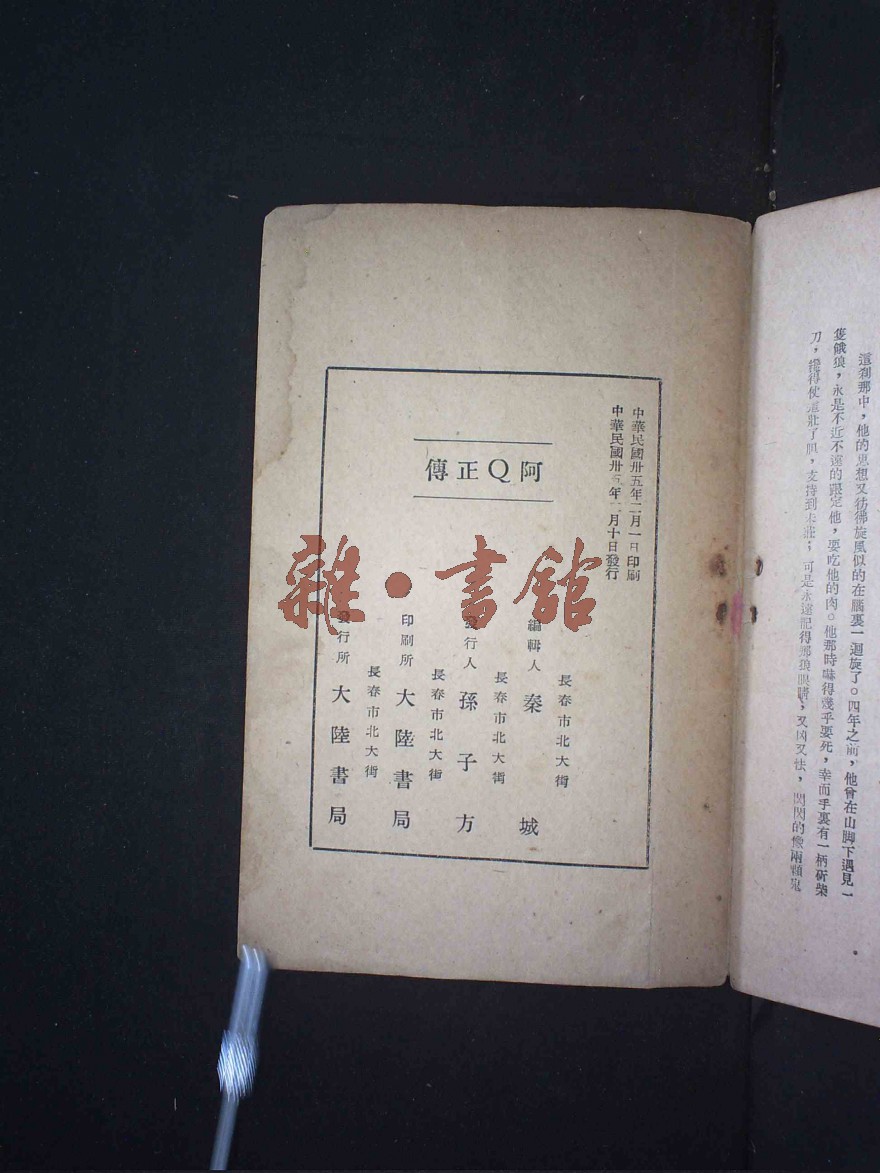 這刹那中，他的思想又彷彿旋風似的在腦裏一迴旋了。四年之前，他曾在山脚下遇見一
隻餓狼，永是不近不遠的跟定他，要吃他的肉。他那時嚇得幾乎要死，幸而手裏有一柄斫柴
刀，纔得仗這壯了胆，支持到未莊；可是永遠記得那狼眼睛，又凶又怯，閃閃的像兩顆鬼
中華民國卅五年二月一日印刷
中華民國卅五年 月十日發行
阿Q正傳
長春市北大街
編輯人 秦城
長春市北大街
發行人 孫子方
長春市北大街
印刷所 大陸書局
長春市北大街
發行所 大陸書局
雜·書館